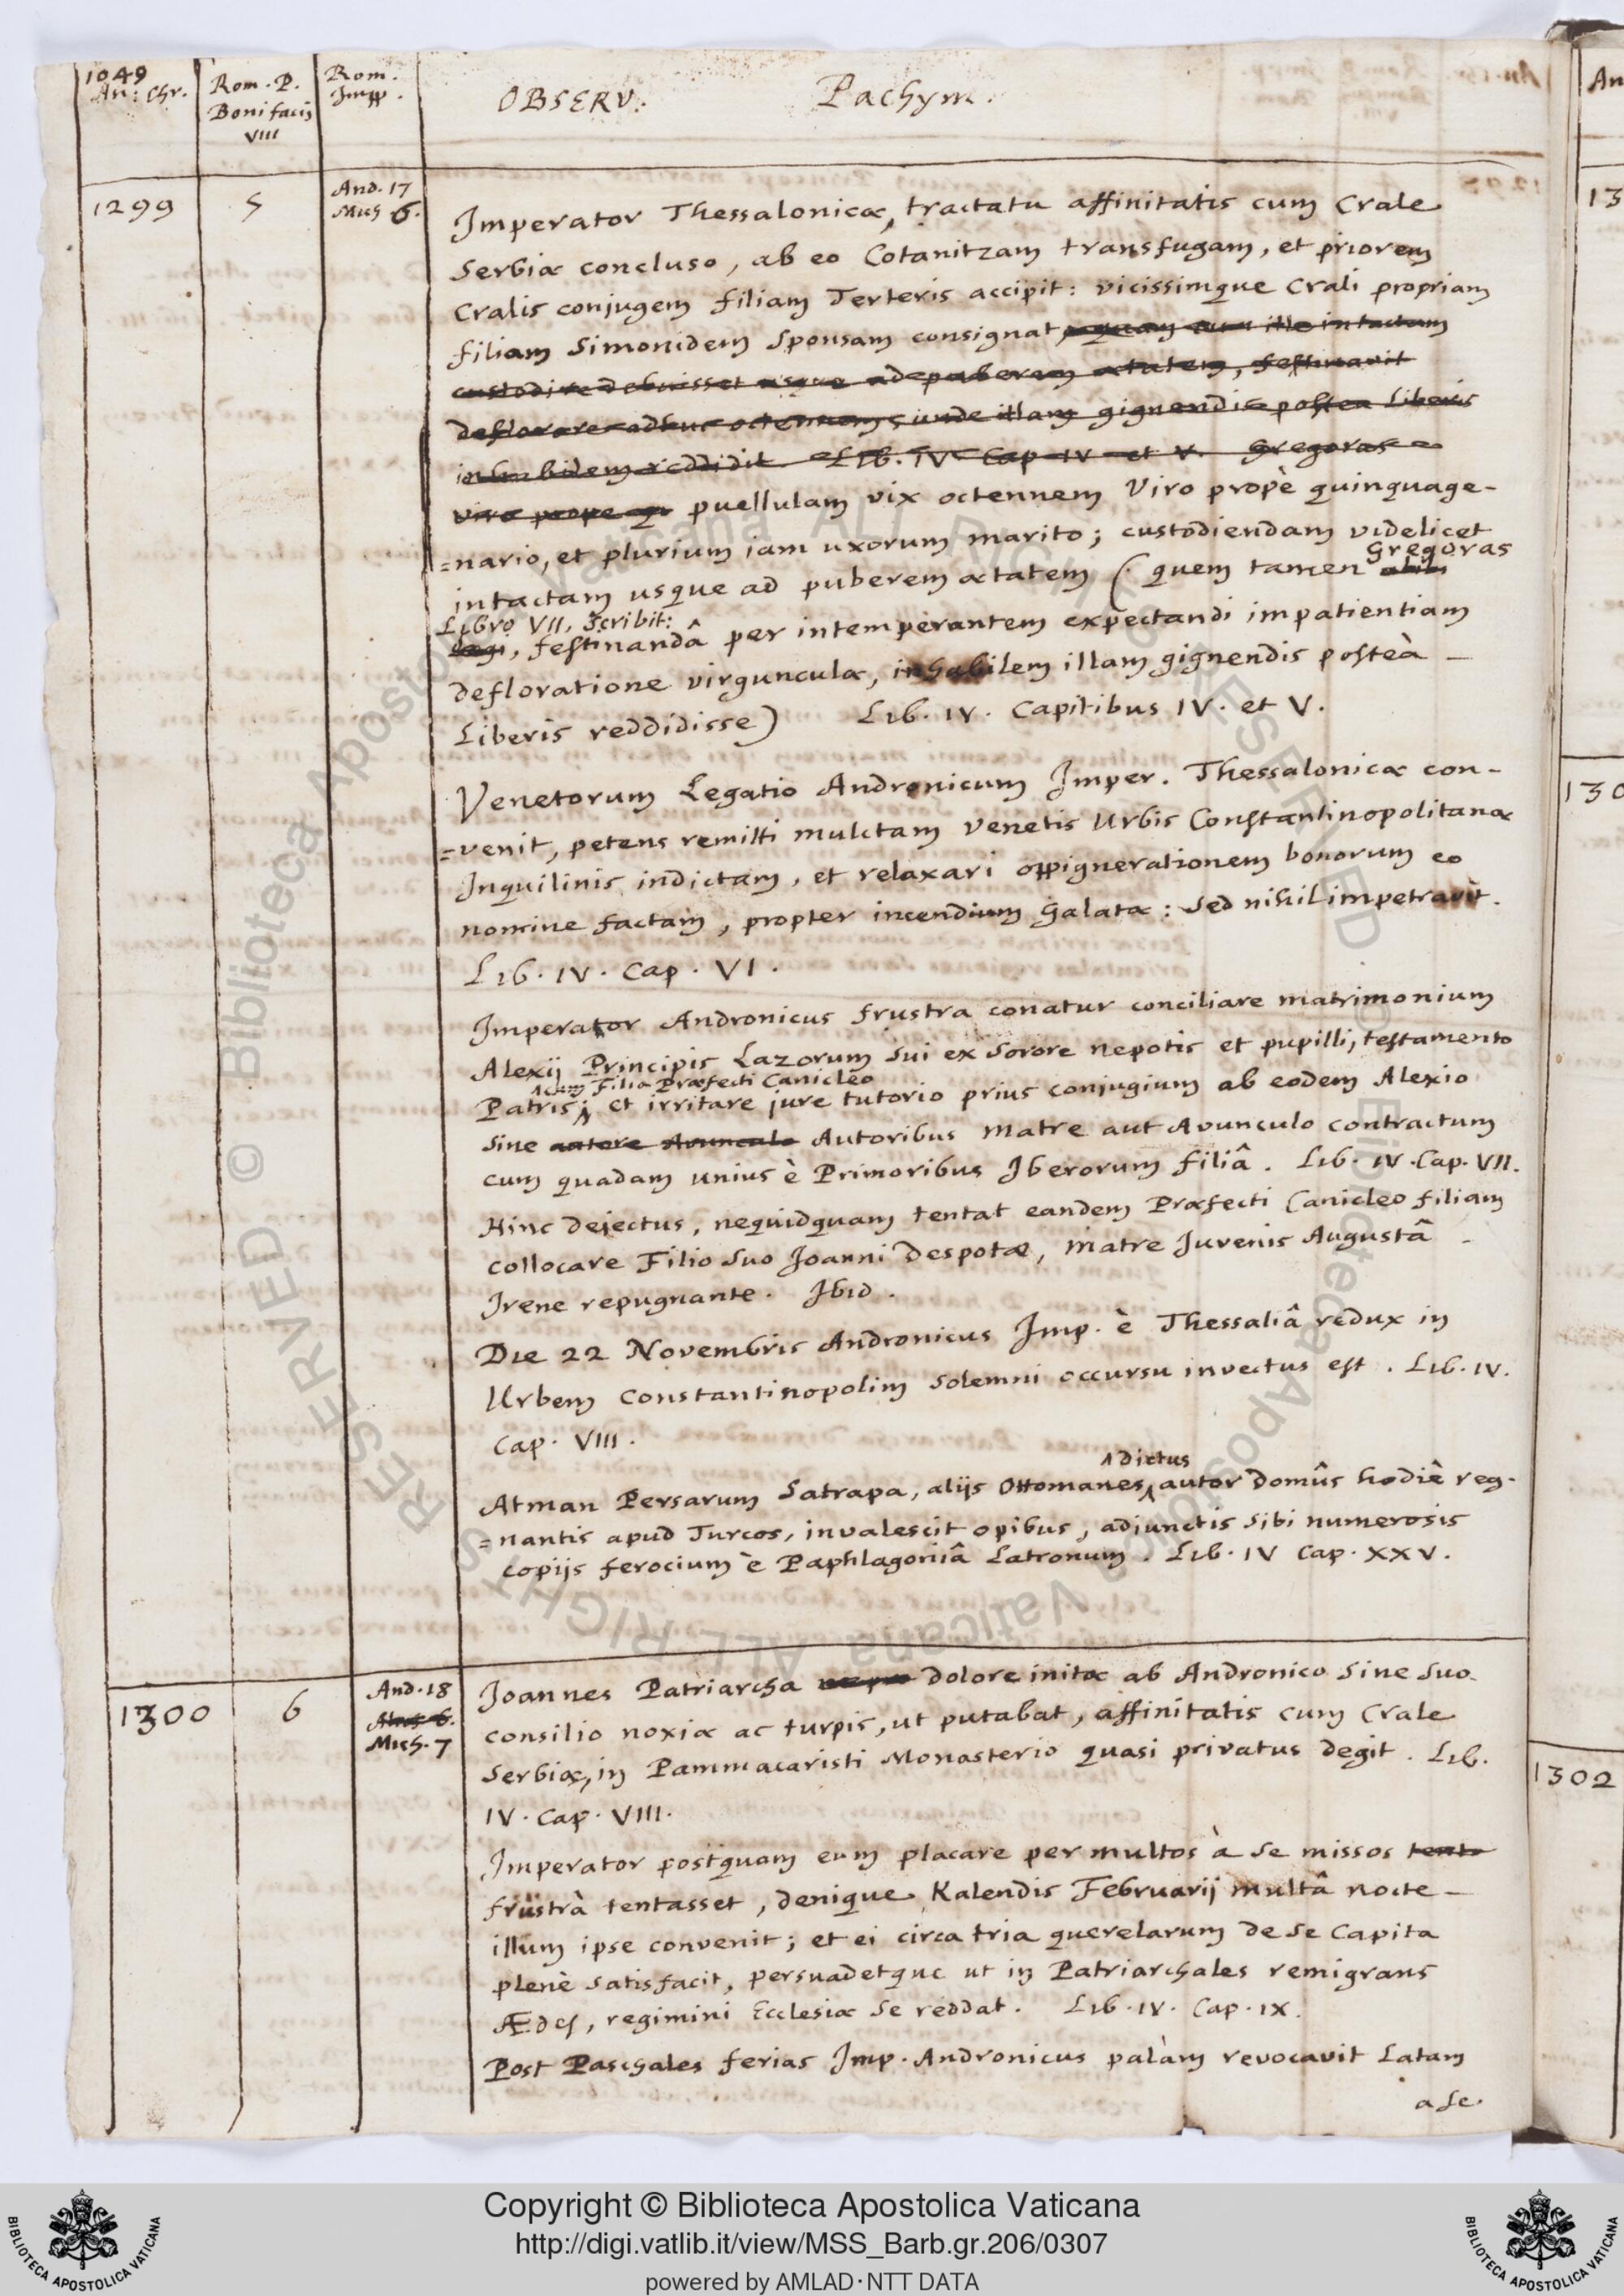 1049
An: Chr.
Rom. P.
Bonifacij
VIII
Rom.
Impp.
OBSERV. Pachym.
1299
5
And. 17
Mich 6.
Imperator Thessalonicæ, tractatu affinitatis cum Crale
Serbiæ concluso, ab eo Cotanitzam transfugam, et priorem
Cralis conjugem filiam Terteris accipit: vicissimque Crali propriam
filiam Simonidem Sponsam consignat, quam ille intactam
custodire debuisset usque ad puberem ætatem, festinavit
deflorare adhuc octennem; unde illam gignendis postea Liberis
inhabilem reddidit Lib. IV. Cap IV et V. Gregoras
viro prope puellulam vix octennem Viro propè quinquage-
=nario, et plurium iam uxorum marito; custodiendam videlicet
intactam usque ad puberem ætatem (quem tamen Gregoras
Libro VII, Scribit:
festinandâ per intemperantem expectandi impatientiam
defloratione virgunculæ, inhabilem illam gignendis posteà
Liberis reddidisse) Lib. IV. Capitibus IV. et V.
Venetorum Legatio Andronicum Imper. Thessalonicæ con-
=venit, petens remitti mulctam Venetis Urbis Constantinopolitanæ
Inquilinis indictam, et relaxari oppignerationem bonorum eo
nomine factam, propter incendium Galatæ: Sed nihil impetravit.
Lib. IV. Cap. VI.
Imperator Andronicus frustra conatur conciliare matrimonium
Alexij Principis Lazorum Sui ex Sorore nepotis et pupilli, testamento
cum Filia Præfecti Canicleo
Patris; et irritare jure tutorio prius conjugium ab eodem Alexio
Sine autore Avunculo Autoribus Matre aut Avunculo contractum
cum quadam unius è Primoribus Iberorum filiâ. Lib. IV. Cap. VII.
Hinc dejectus, nequidquam tentat eandem Præfecti Canicleo filiam
collocare Filio Suo Joanni Despotæ, Matre Juvenis Augustâ
Irene repugnante. Ibid.
Die 22 Novembris Andronicus Imp. è Thessaliâ redux in
Urbem Constantinopolim Solemni occursu invectus est. Lib. IV.
Cap. VIII.
dictus
Atman Persarum Satrapa, alijs Ottomanes, autor Domûs hodiê reg-
=nantis apud Turcos, invalescit opibus, adjunctis Sibi numerosis
copijs ferocium è Paphlagoniâ Latronum. Lib. IV Cap. XXV.
1300
6
And. 18
Mich 6.
Mich. 7
Joannes Patriarcha dolore initæ ab Andronico Sine Suo
consilio noxiæ ac turpis, ut putabat, affinitatis cum Crale
Serbiæ, in Pammacaristi Monasterio quasi privatus degit. Lib.
IV. Cap. VIII.
Imperator postquam eum placare per multos à Se missos tento
frustrà tentasset, denique Kalendis Februarij multâ nocte
illum ipse convenit; et ei circa tria querelarum de Se Capita
plenè Satisfacit, persuadetque ut in Patriarchales remigrans
Ædes, regimini Ecclesiæ Se reddat. Lib. IV. Cap. IX.
Post Paschales ferias Imp. Andronicus palàm revocavit Latam
a Se
An
13
130
1302
Copyright © Biblioteca Apostolica Vaticana
http://digi.vatlib.it/view/MSS_Barb.gr.206/0307
powered by AMLAD·NTT DATA
BIBLIOTECA APOSTOLICA VATICANA
BIBLIOTECA APOSTOLICA VATICANA
© Biblioteca Apostolica Vaticana ALL RIGHTS RESERVED
© Biblioteca Apostolica Vaticana ALL RIGHTS RESERVED